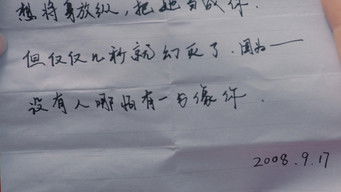 想将身放纵,把她当成你.
但仅仅几秒就幻灭了.因为——
没有人哪怕有一为像你.
2008.9.17